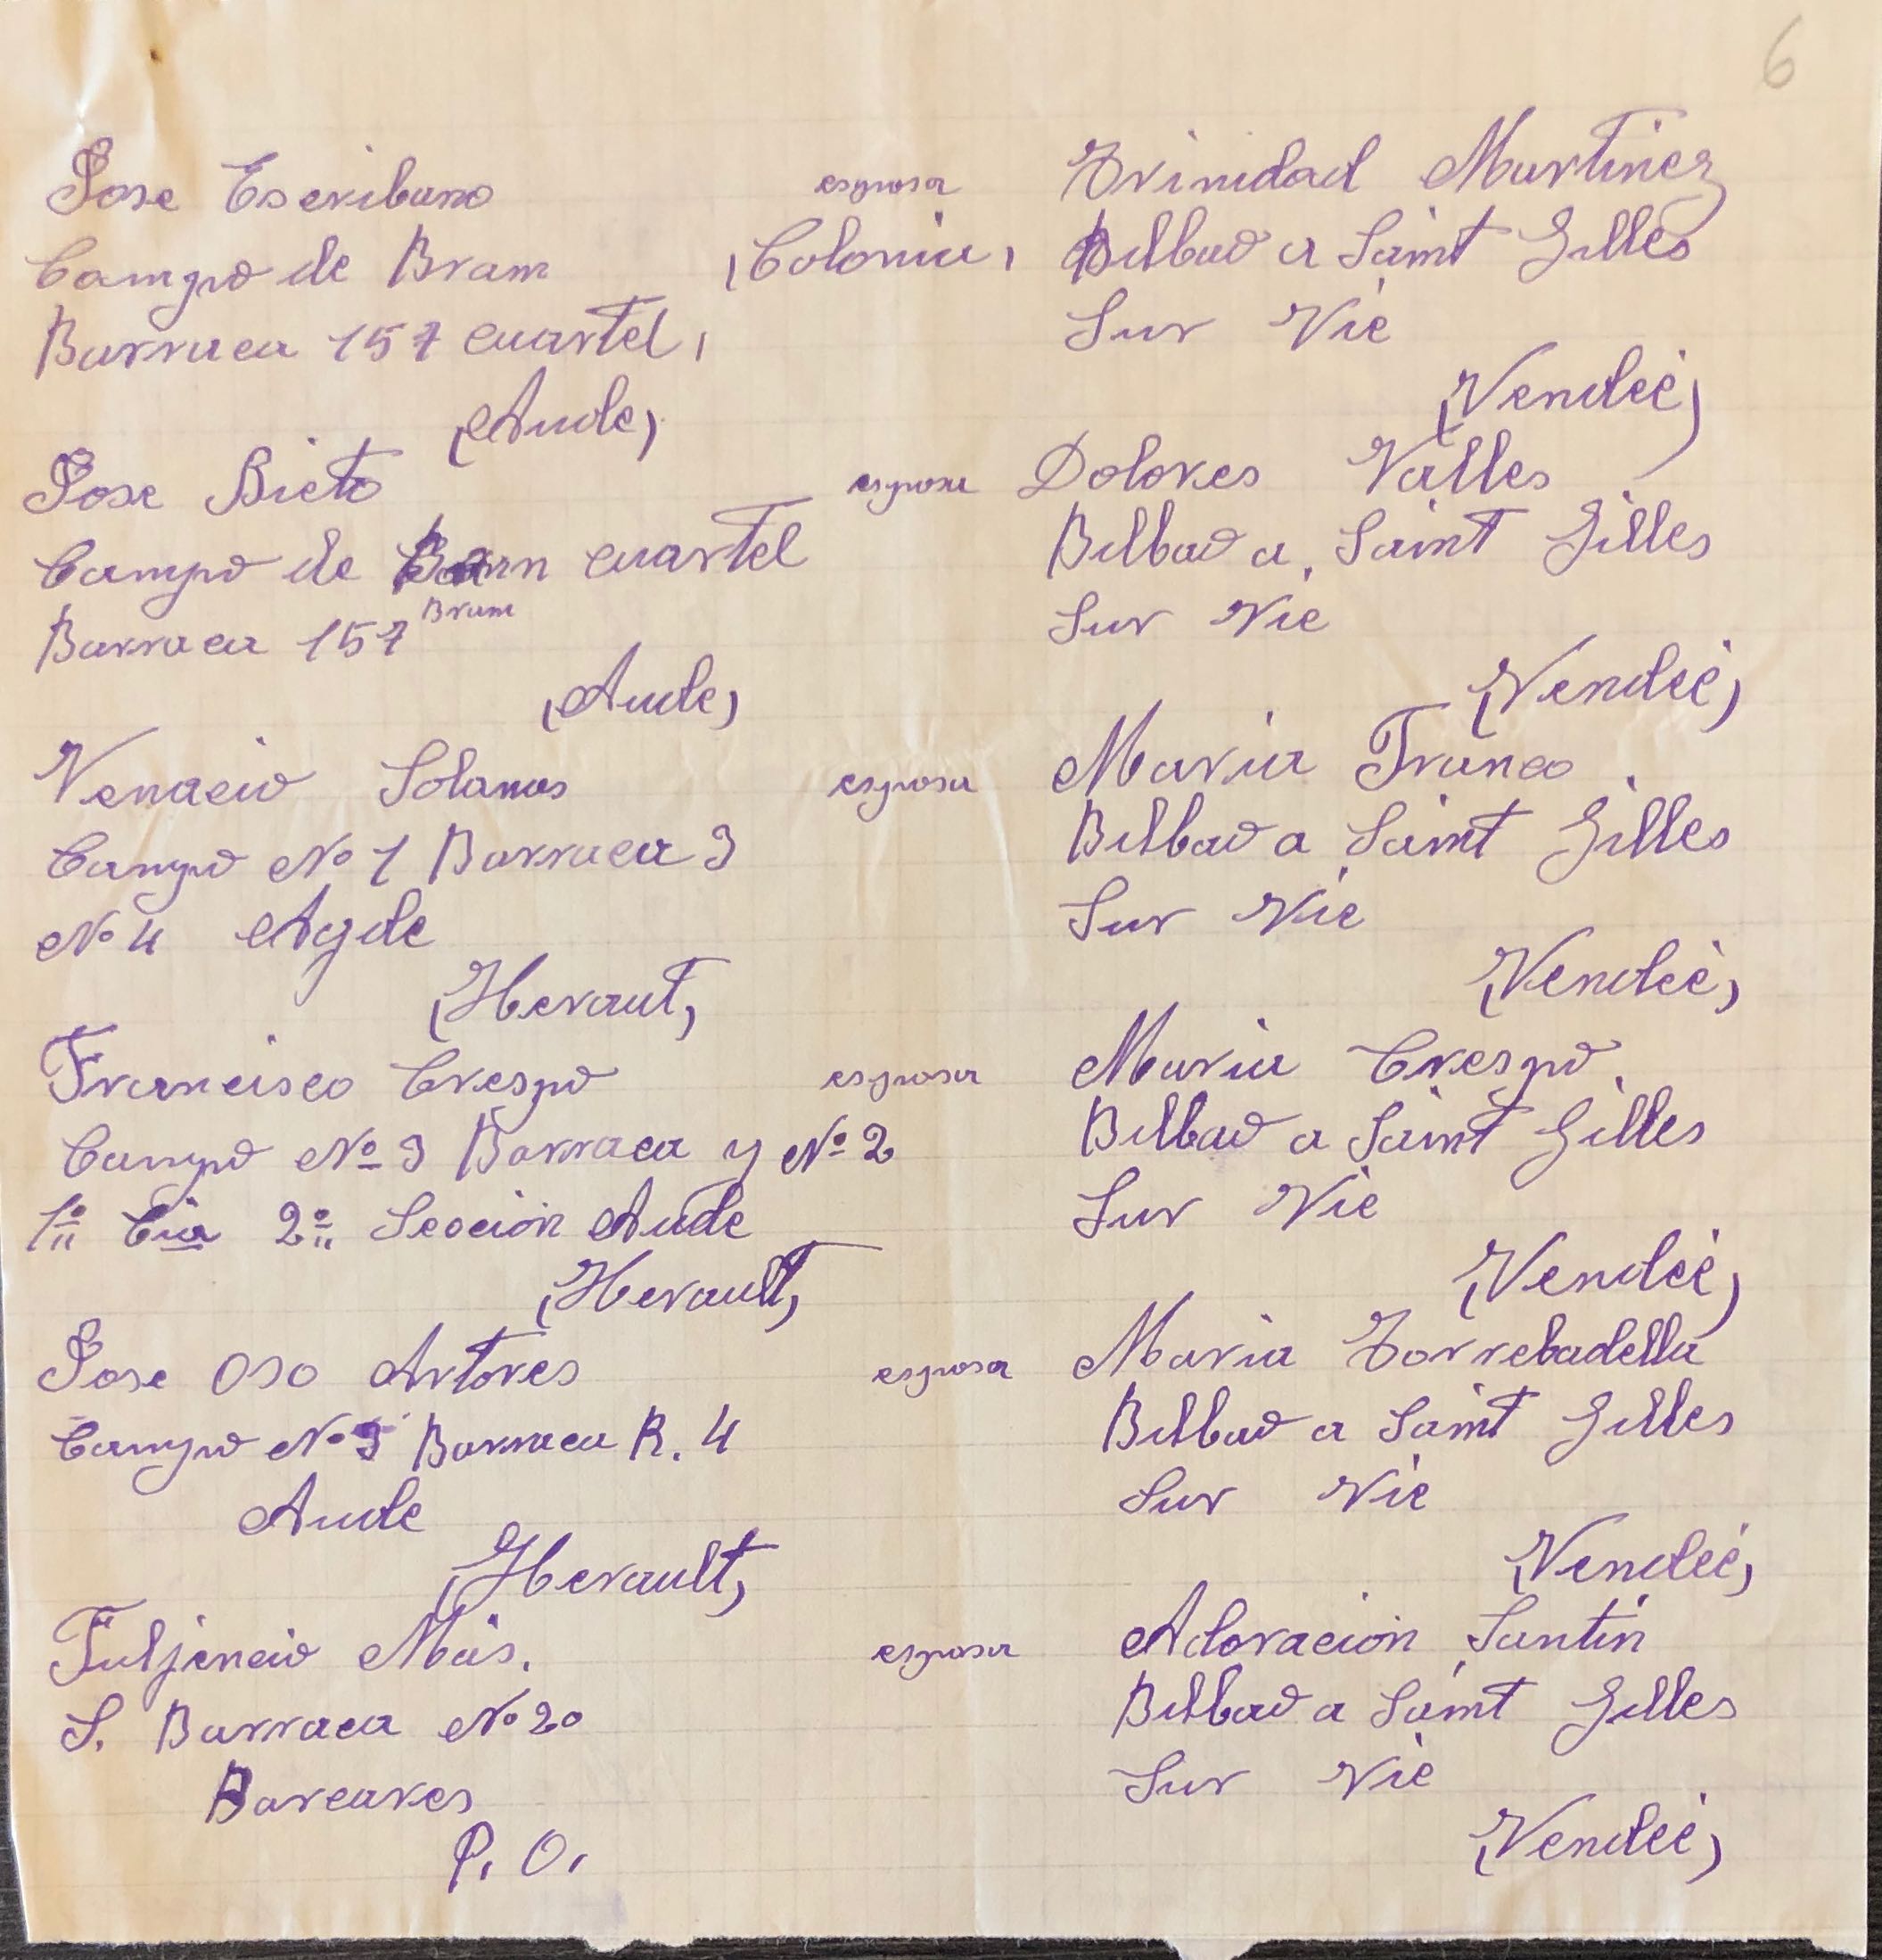 6
Jose Escribano esposa Trinidad Martinez
Campo de Bram (Colonia) Bilbao a Saint Gilles
Barraca 157 cuartel, Sur Vie
(Aude) (Vendeé)
Jose Bieto esposa Dolores Valles
Campo de cuartel Bilbao a Saint Gilles
Bram
Barraca 157 Sur Vie
(Aude) (Vendeé)
Venacio Solanas esposa Maria Franco
Campo No 1 Barraca 3 Bilbao a Saint Gilles
No 4 Agde Sur Vie
(Heraut) (Vendeé)
Francisco Crespo esposa Maria Crespo
Campo Nº 3 Barraca y Nº 2 Bilbao a Saint Gilles
1º Cia 2º Seocion Aude Sur Vie
(Herault) (Vendeé)
Jose Oso Artores esposa Maria Torrebadella
Campo Nº 3 Barraca R. 4 Bilbao a Saint Gilles
Aude Sur Vie
(Herault) (Vendeé)
Fuljencio Mas. esposa Adoracion Santin
S. Barraca No 20 Bilbao a Saint Gilles
Barcares Sur Vie
P. O. (Vendeé)